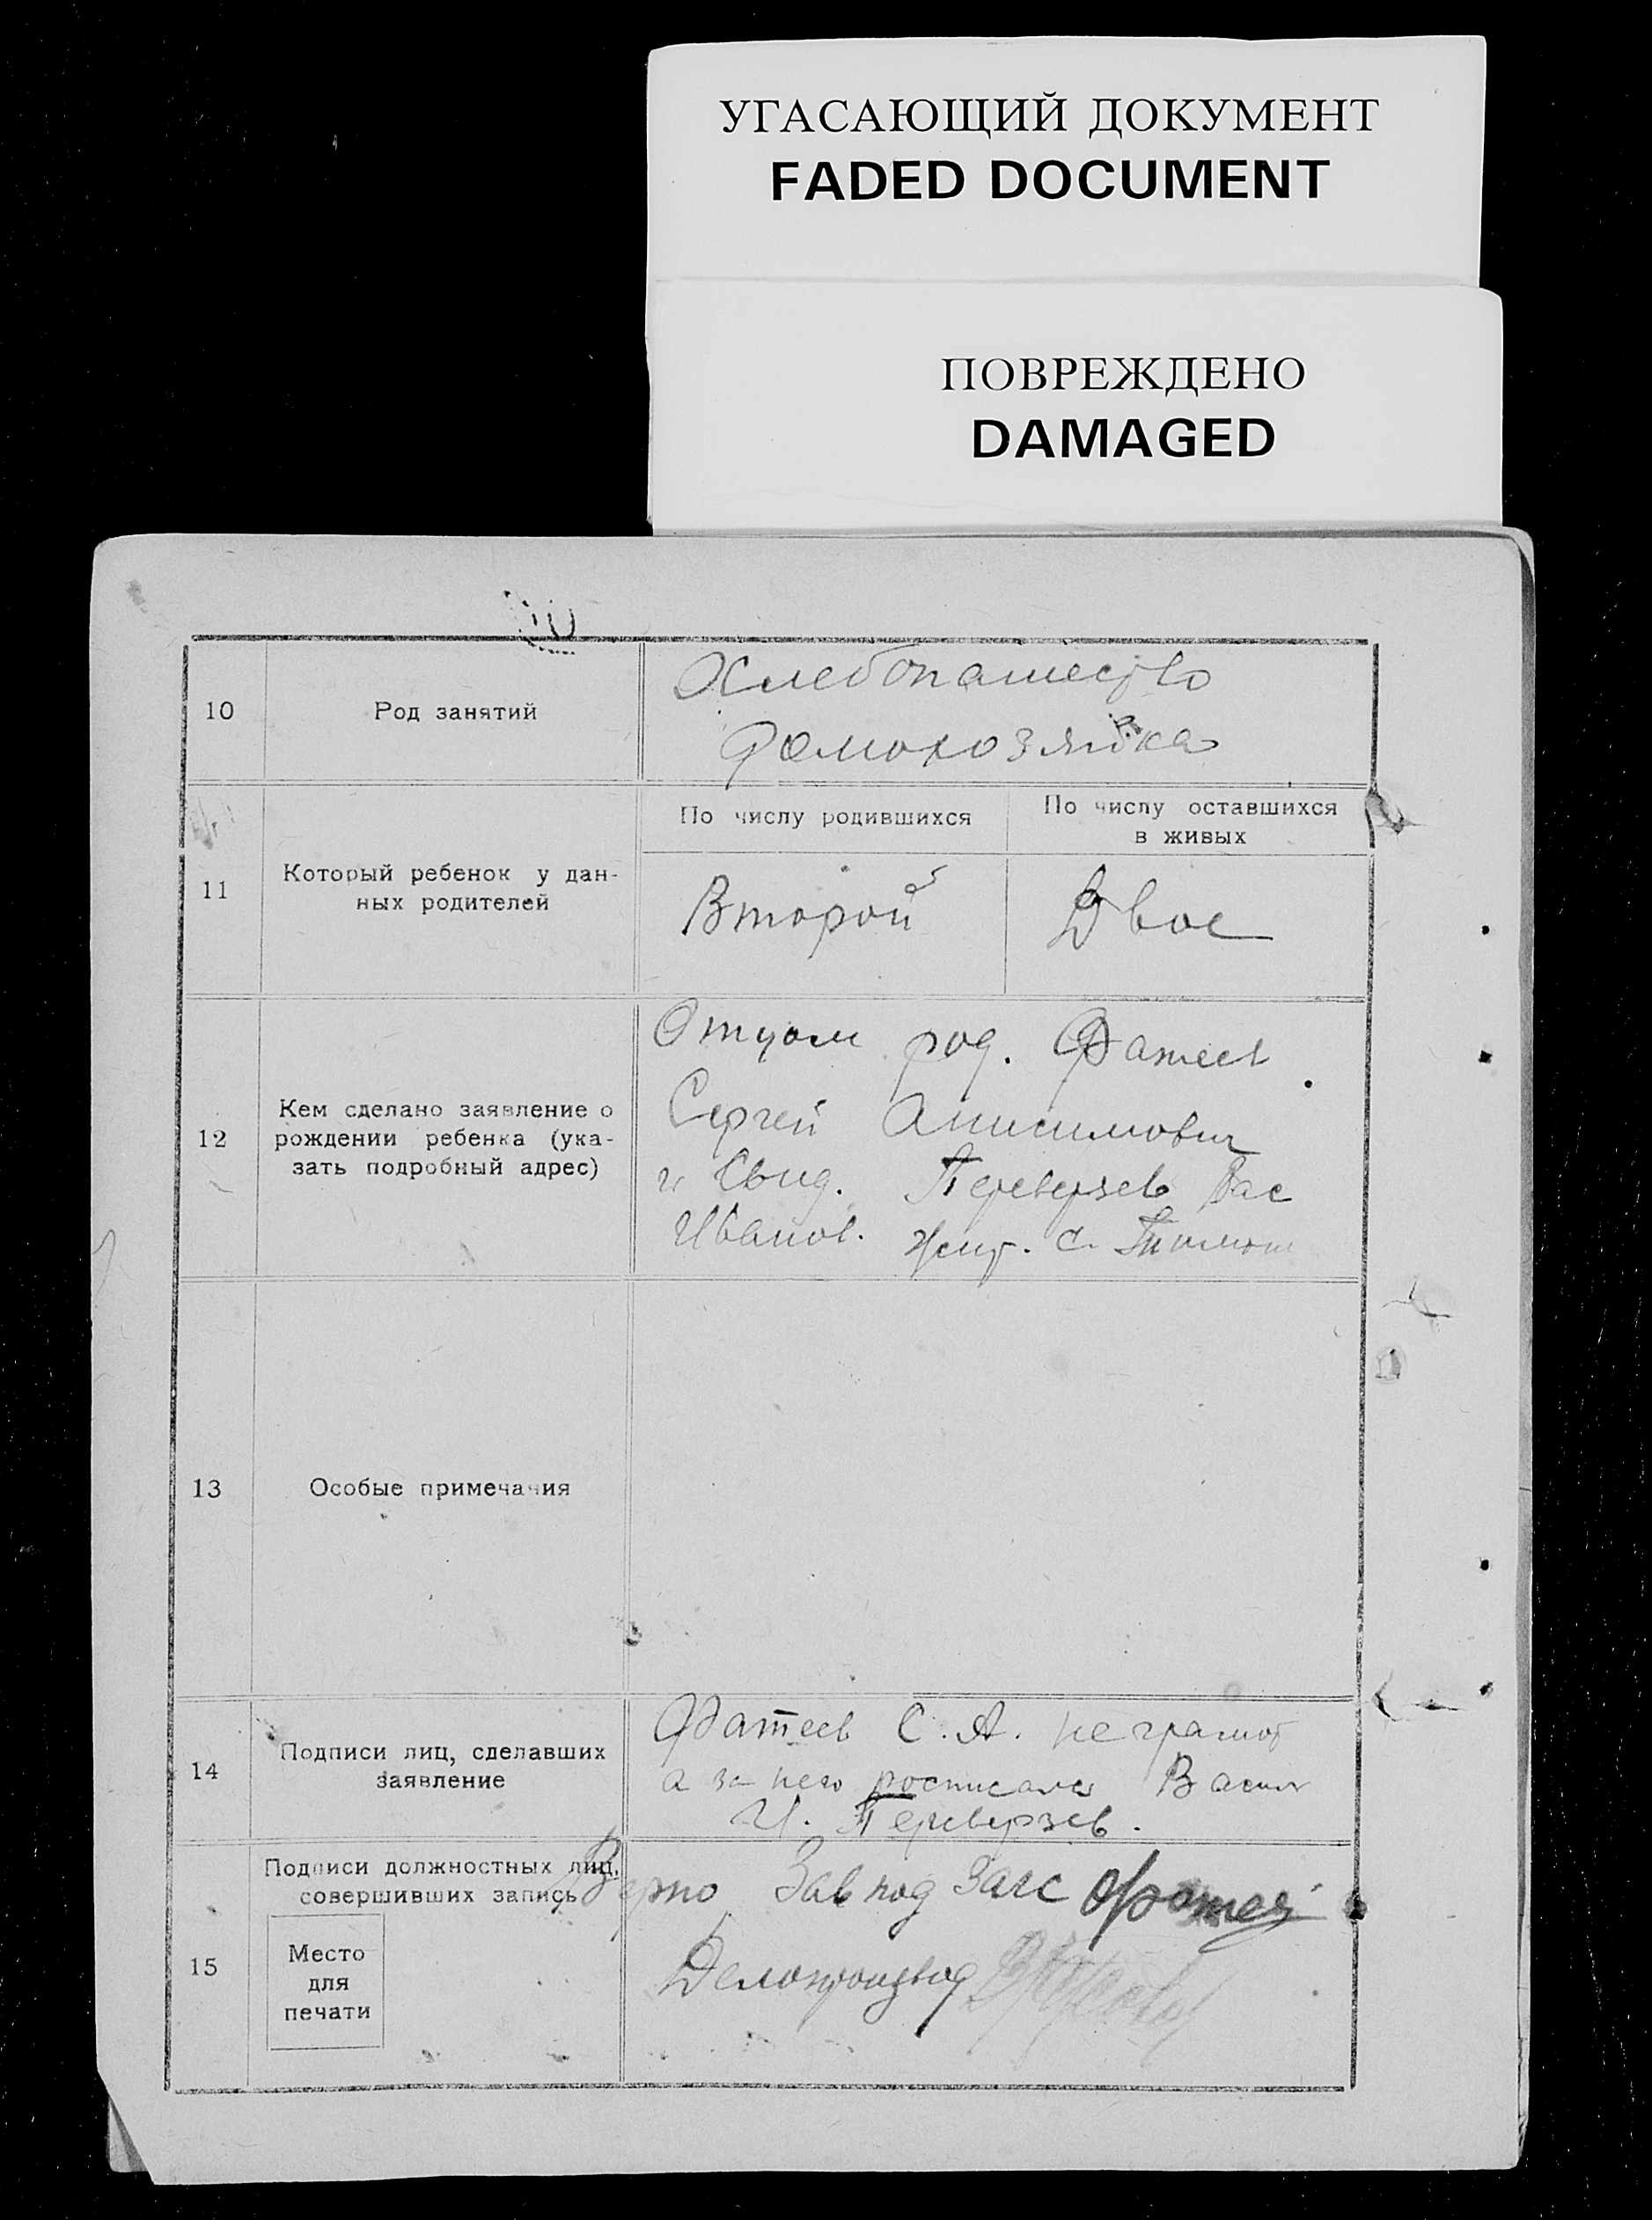 УГАСАЮЩИЙ ДОКУМЕНТ
FADED DOCUMENT
ПОВРЕЖДЕНО
DAMAGED
10
Род занятий
Хлебопашество
Домохозяйка
11
Который ребенок у дан-
ных родителей
По числу родившихся
Второй
По числу оставшихся
в живых
Двое
12
Кем сделано заявление о
рождении ребенка (ука-
зать подробный адрес)
Отцом род. Фатеев
Сергей Анисимович
и Свид. Переверзев Вас
Иванов. жит. с.
13
Особые примечания
14
Подписи лиц, сделавших
заявление
Фатеев С. А. неграмот
а за него росписался Васил
И. Переверзев.
Подписи должностных лиц,
совершивших запись
Верно Завпод Загс
15
Место
для
печати
Делопроизвод